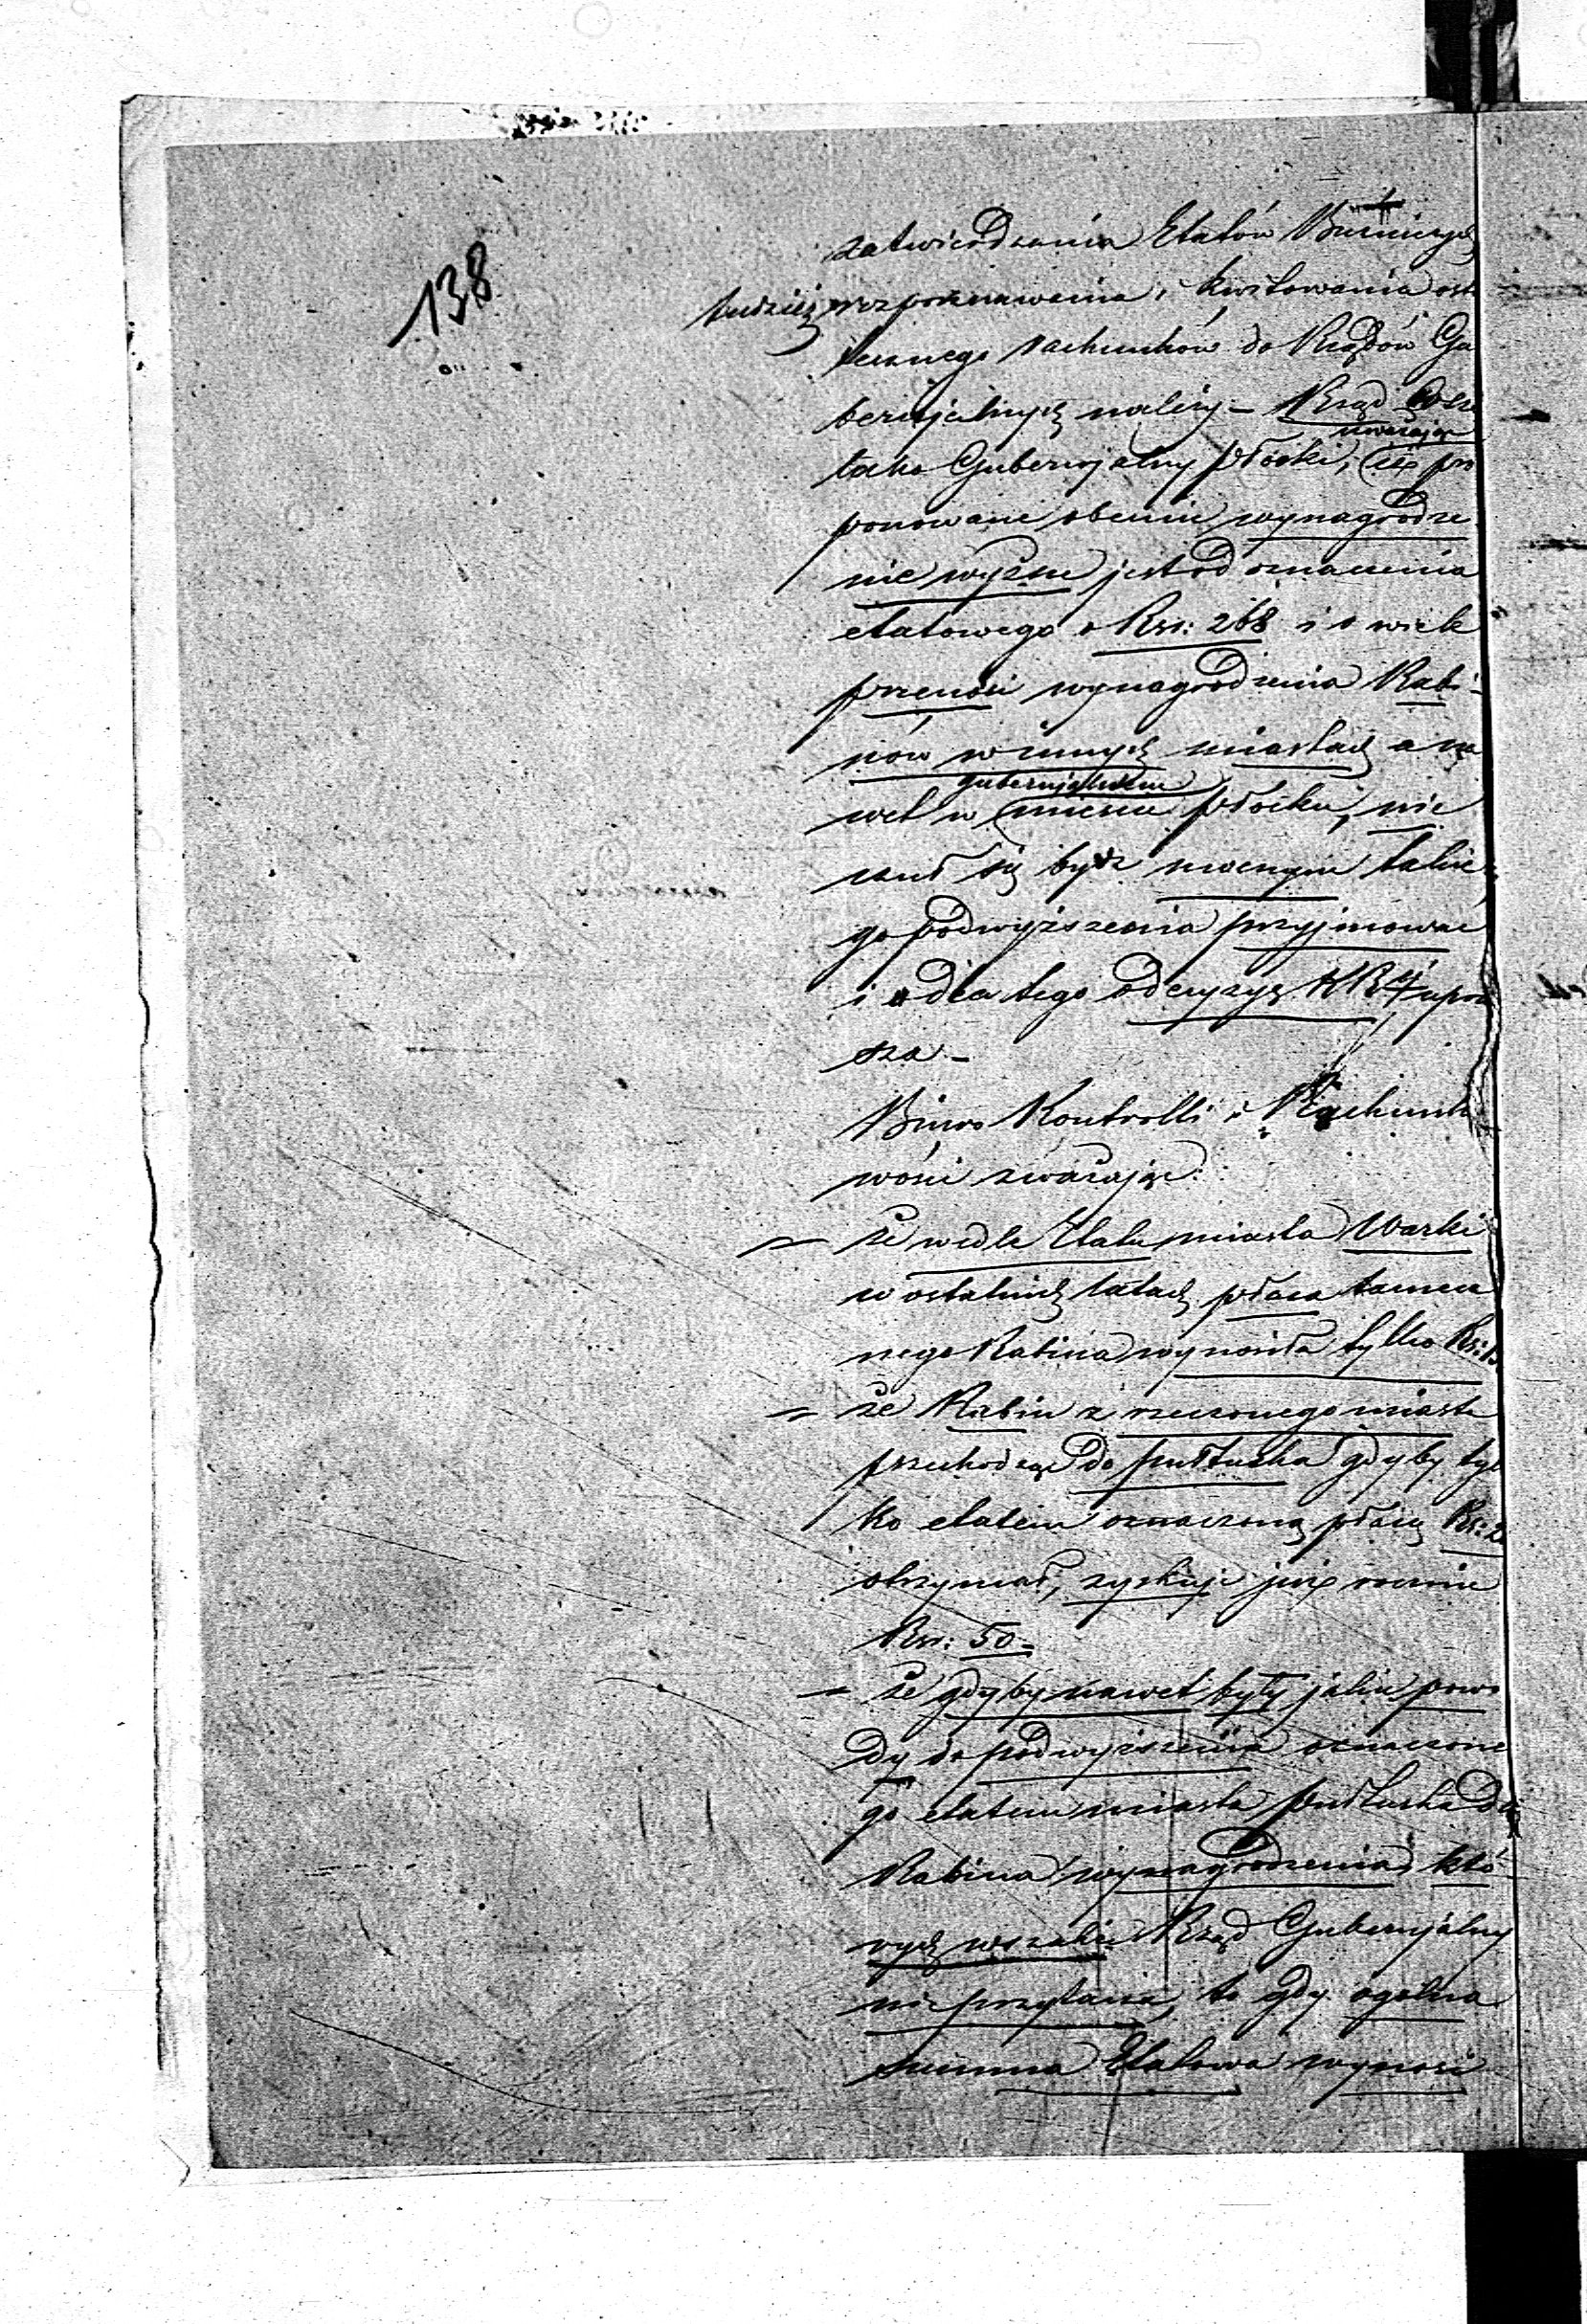 138
zatwierdzania Etatów Bóżniczych
tudzież rozpoznawania i kwitowania osta
tecznego rachunków do Rządów Gu
bernjalnych należy – Rząd
uważając
taka Gubernjalny Płocki, (iż pro
ponowane obecnie wynagrodze
nie wyższe jest od oznaczenia
etatowego o Rsr: 268 i o wiele
przenosi wynagrodzenia Rabi-
nów w innych miastach a na
gubernjalnem
wet w (mieście Płocku, nie
czuł się bydz w mocnym takie
go podwyższenia przyjmować
i dla tego o decyzyę KR upra
sza –
Biuro Kontrolli i Rachunk
wości zważając:
– że wedle Etatu miasta Warki
w ostatnich latach płaca tamecz
nego Rabina wynosiła tylko Rs:
– że Rabin z rzeczonego miasta
przechodząc do Pułtuska gdyby tyl
ko etatem oznaczoną płacę Rs: 2
otrzymał, zyskuje już rocznie
Rsr: 50 –
– że gdyby nawet były jakie powo
dy do podwyższenia oznaczone
go etatem miasta Pułtuska dla
Rabina wynagrodzenia, któ-
rych wszakże Rząd Gubernjalny
nieprzytacza, to gdy ogólna
summa Etatowa wynosi